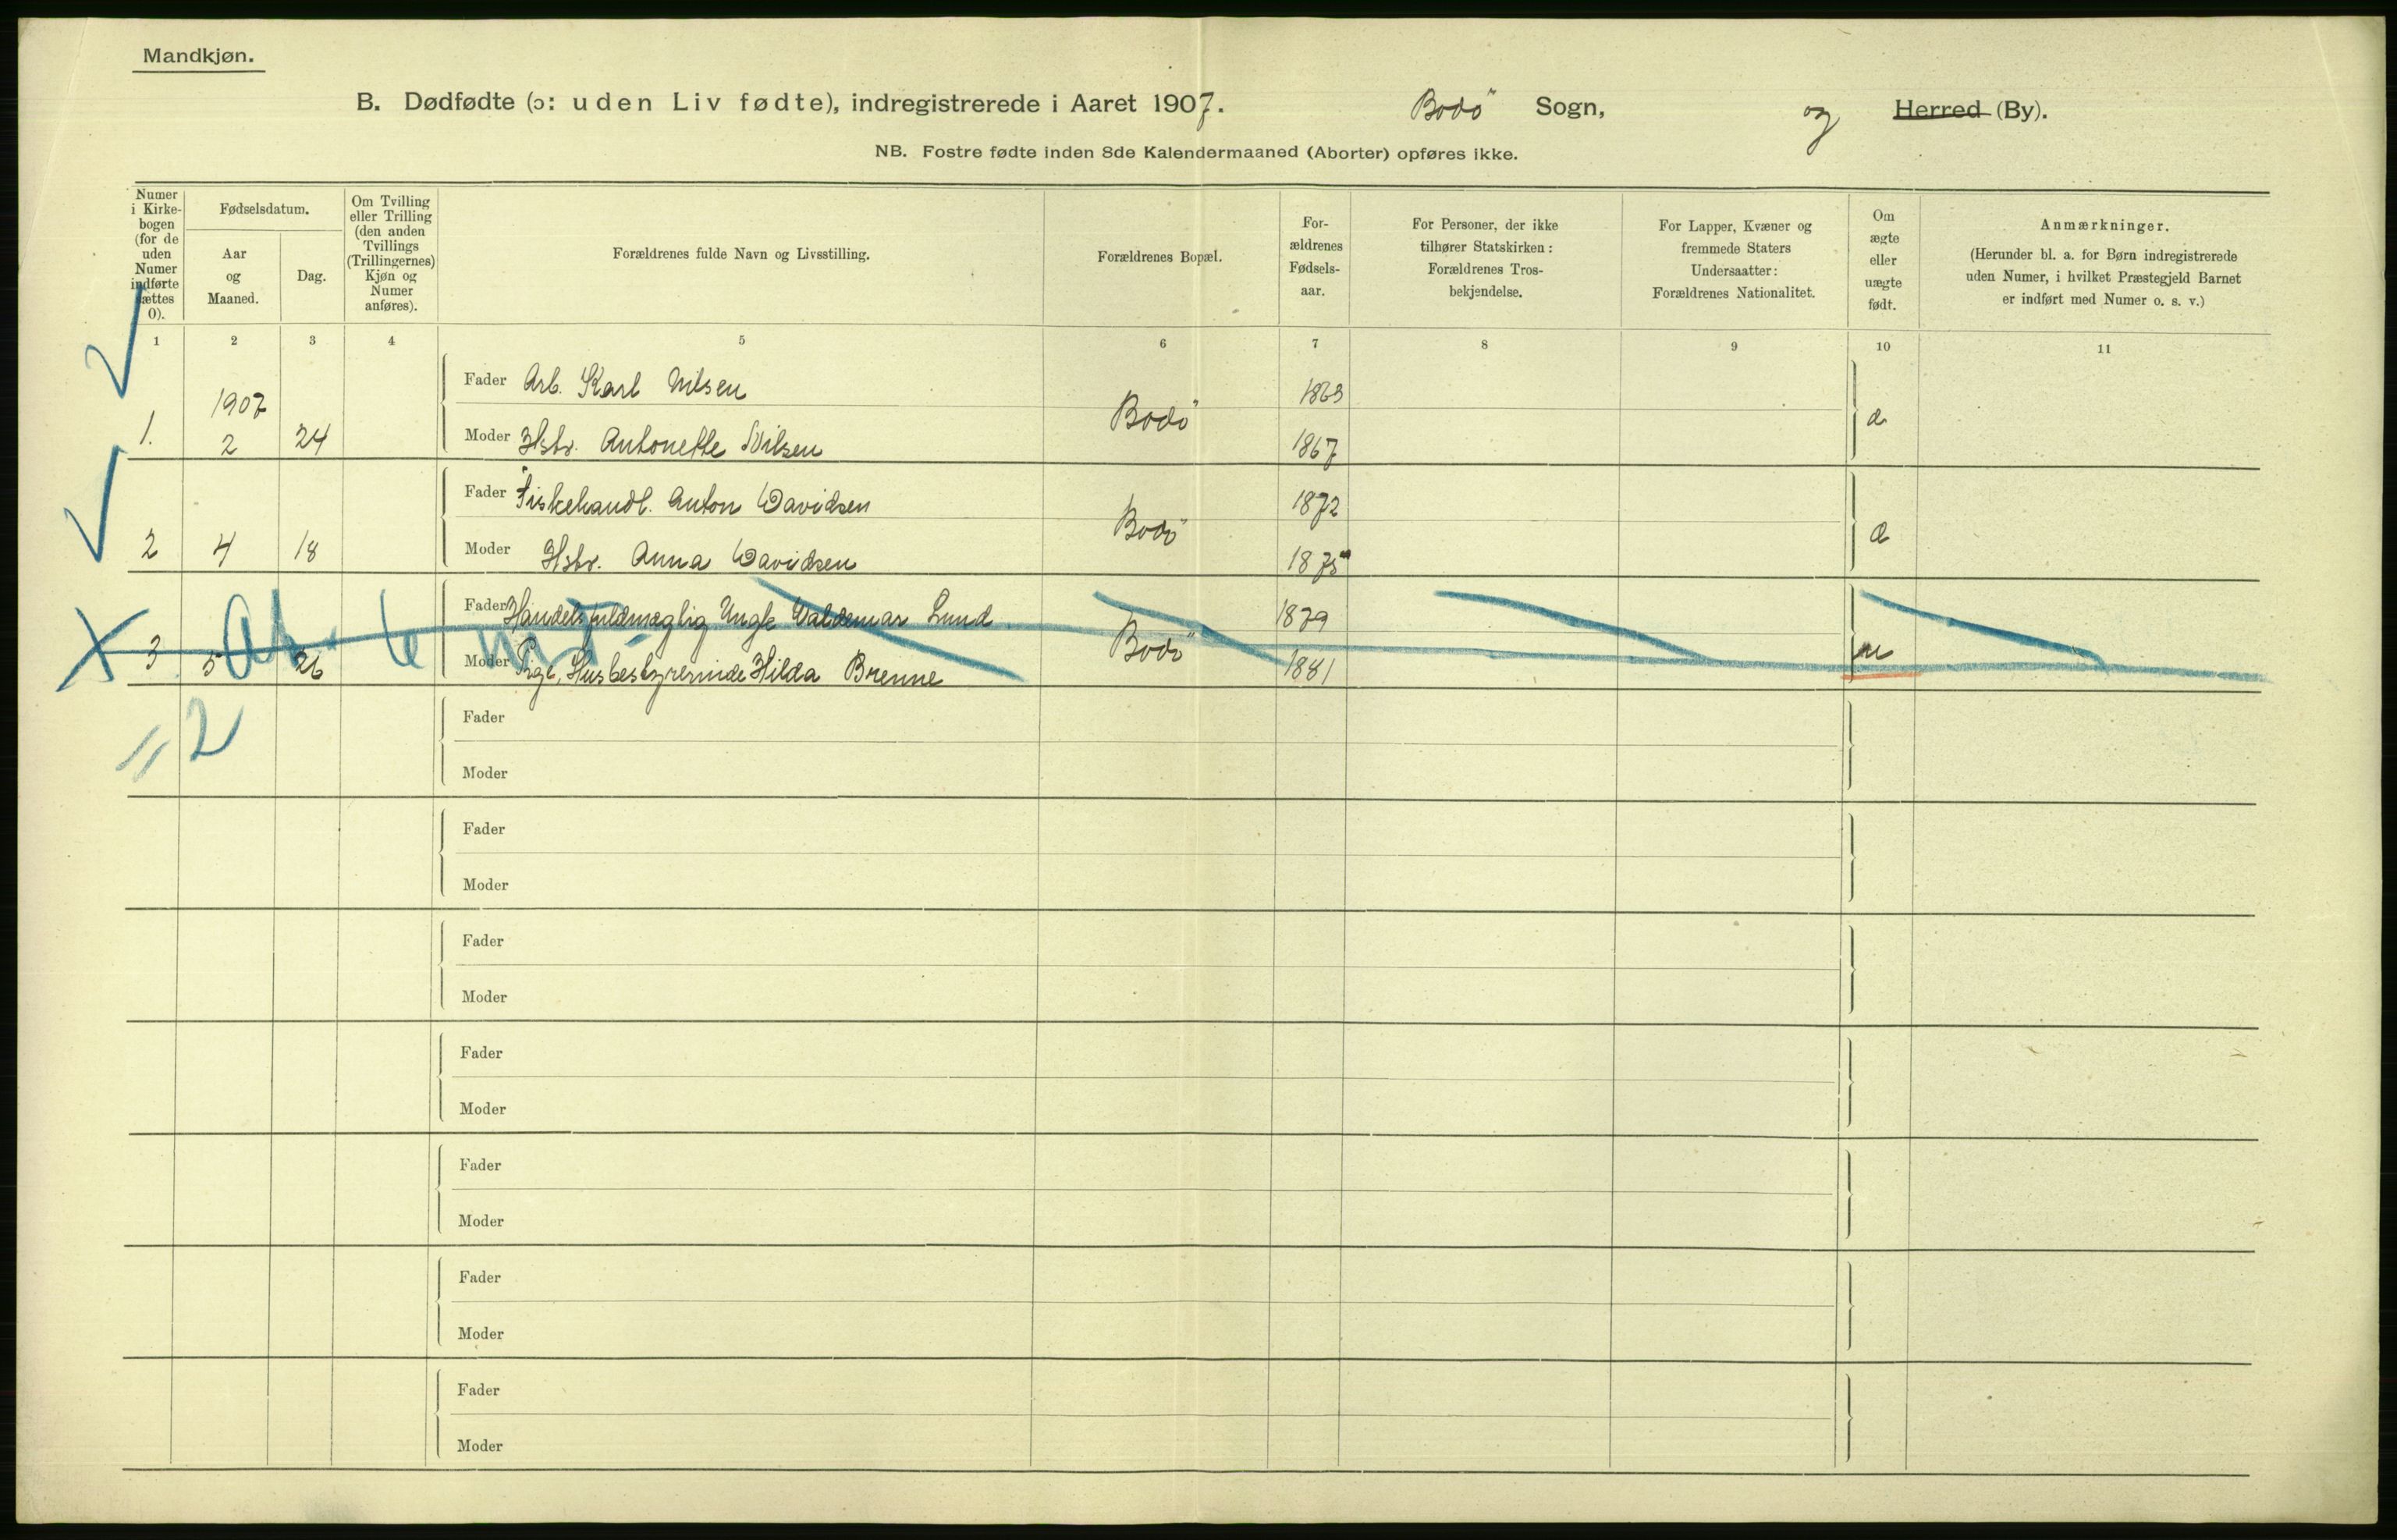 Mandkjøn.
B. Dødfødte (ɔ: uden Liv fødte), indregistrerede i Aaret 1907. Bodö Sogn, og Herred (By).
NB. Fostre fødte inden 8de Kalendermaaned (Aborter) opføres ikke.
Numer i Kirke-bogen (for de uden Numer indførte sættes 0).
Fødselsdatum.
Aar og Maaned.
Dag.
Om Tvilling eller Trilling (den anden Tvillings (Trillingernes) Kjøn og Numer anføres).
Forældrenes fulde Navn og Livsstilling.
Forældrenes Bopæl.
For-ældrenes Fødsels-aar.
For Personer, der ikke tilhører Statskirken: Forældrenes Tros-bekjendelse.
For Lapper, Kvæner og fremmede Staters Undersaatter: Forældrenes Nationalitet.
Om ægte eller uægte født.
Anmærkninger.
(Herunder bl. a. for Børn indregistrerede uden Numer, i hvilket Præstegjeld Barnet er indført med Numer o. s. v.)
1 2 3 4 5 6 7 8 9 10 11
Fader Arb. Karl Nilsen 1863
1. 1907 2 24 Bodö
Moder Hstr. Antonette Nilsen 1867
Fader Fiskehandl. Anton Davidsen 1872
2 4 18 Bodö
Moder Hstr. Anna Davidsen 1875
Fader Handelsfuldmægtig Ungk Valdemar Lund 1879
3 5 26 Bodö
Moder Pige, Husbestyrerinde Hilda Brenne 1881
= 2
Fader
Moder
Fader
Moder
Fader
Moder
Fader
Moder
Fader
Moder
Fader
Moder
Fader
Moder